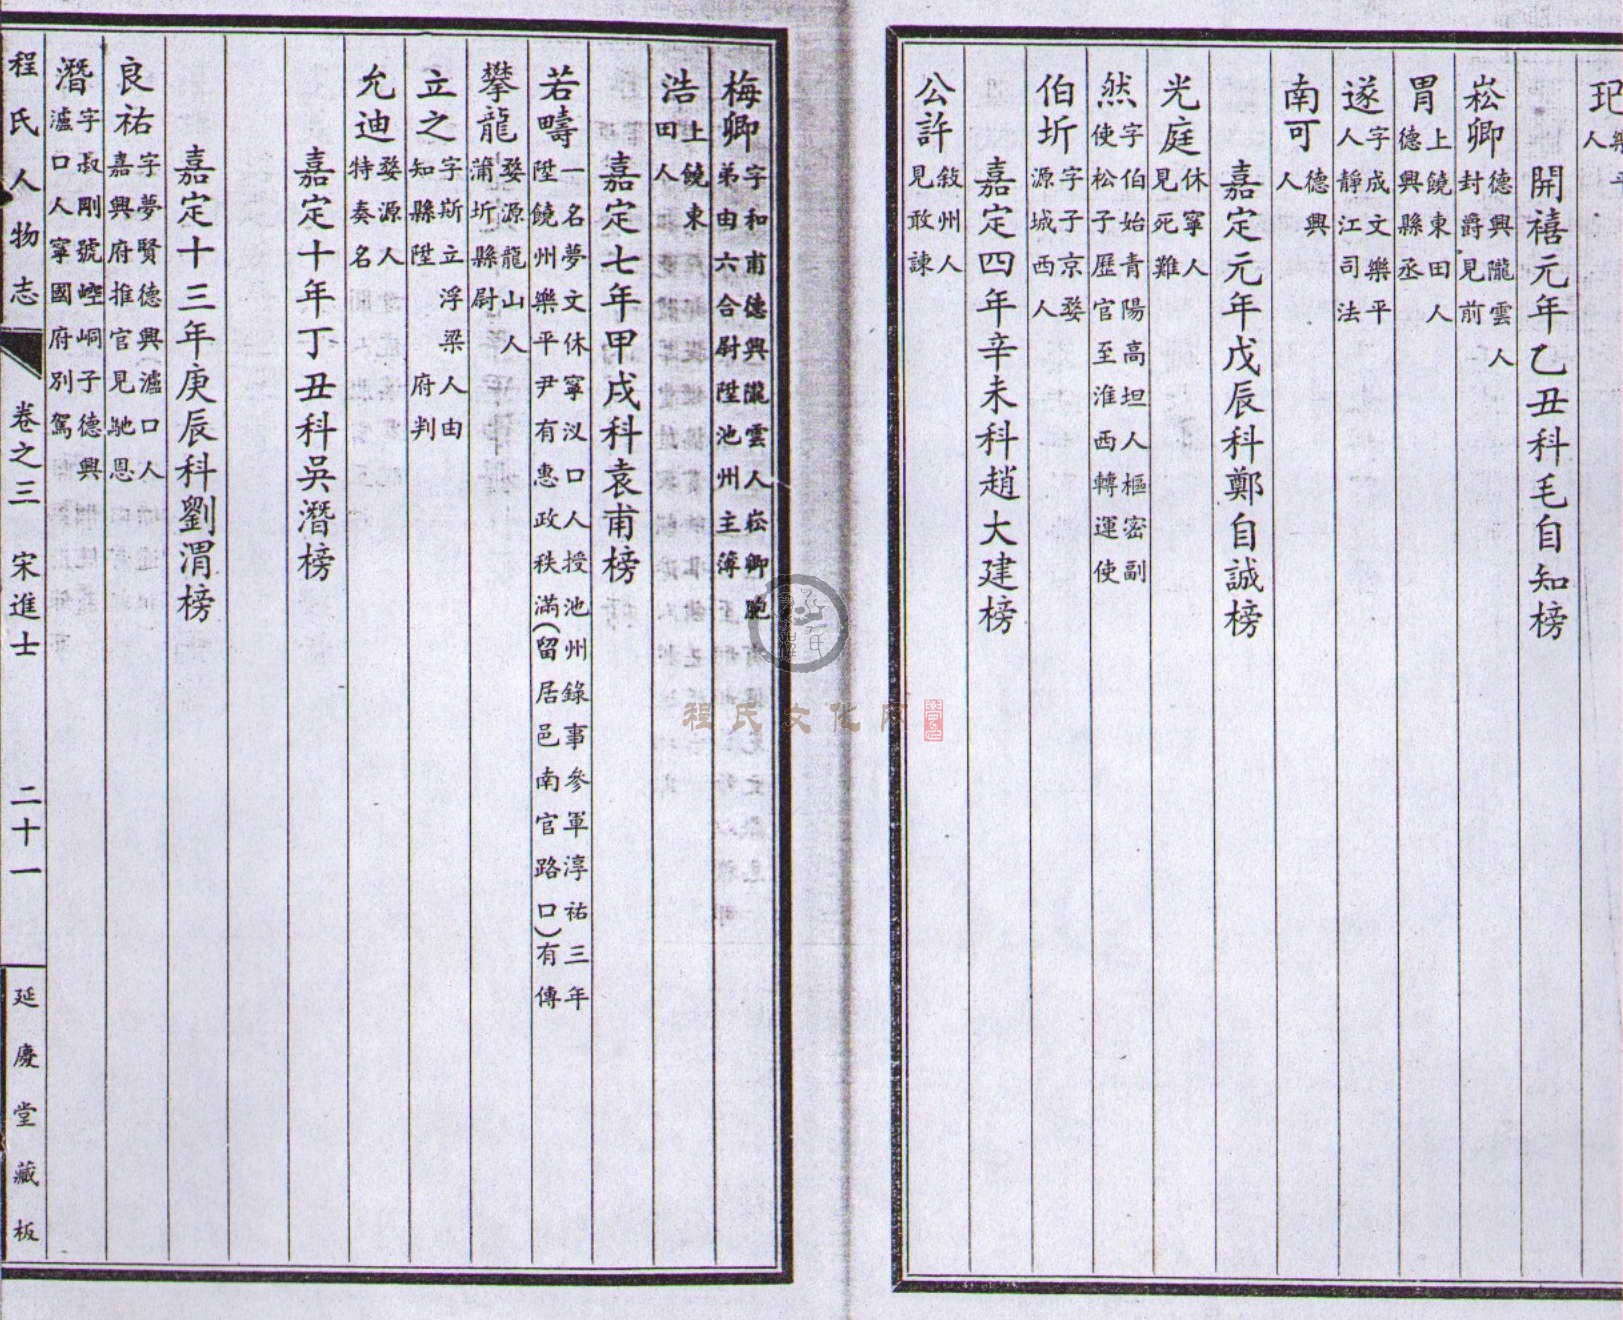 玘樂平
人
開禧元年乙丑科毛自知榜
崧卿德興隴雲人
封爵見前
胃上饒東田人
德興縣丞
遂字成文樂平
人靜江司法
南可德興
人
嘉定元年戊辰科鄭自誠榜
光庭休寧人
見死難
然字伯始青陽高坦人樞密副
使松子歷官至淮西轉運使
伯圻字子京婺
源城西人
嘉定四年辛未科趙大建榜
公許敍州人
見敢諫
梅卿字和甫德興隴雲人崧卿胞
弟由六合尉陞池州主簿
浩上饒東
田人
嘉定七年甲戌科袁甫榜
若疇一名夢文休寧汊口人授池州錄事參軍淳祐三年
陞饒州樂平尹有惠政秩滿(留居邑南官路口)有傳
攀龍婺源龍山人
蒲圻縣尉
立之字斯立浮梁人由
知縣陞府判
允迪婺源人
特奏名
嘉定十年丁丑科吳潛榜
嘉定十三年庚辰科劉渭榜
良祐字夢賢德興瀘口人
嘉興府推官見馳恩
潛字叔剛號崆峒子德興
瀘口人寧國府別駕
程氏人物志 卷之三 宋進士 二十一 延慶堂藏板
程氏文化網